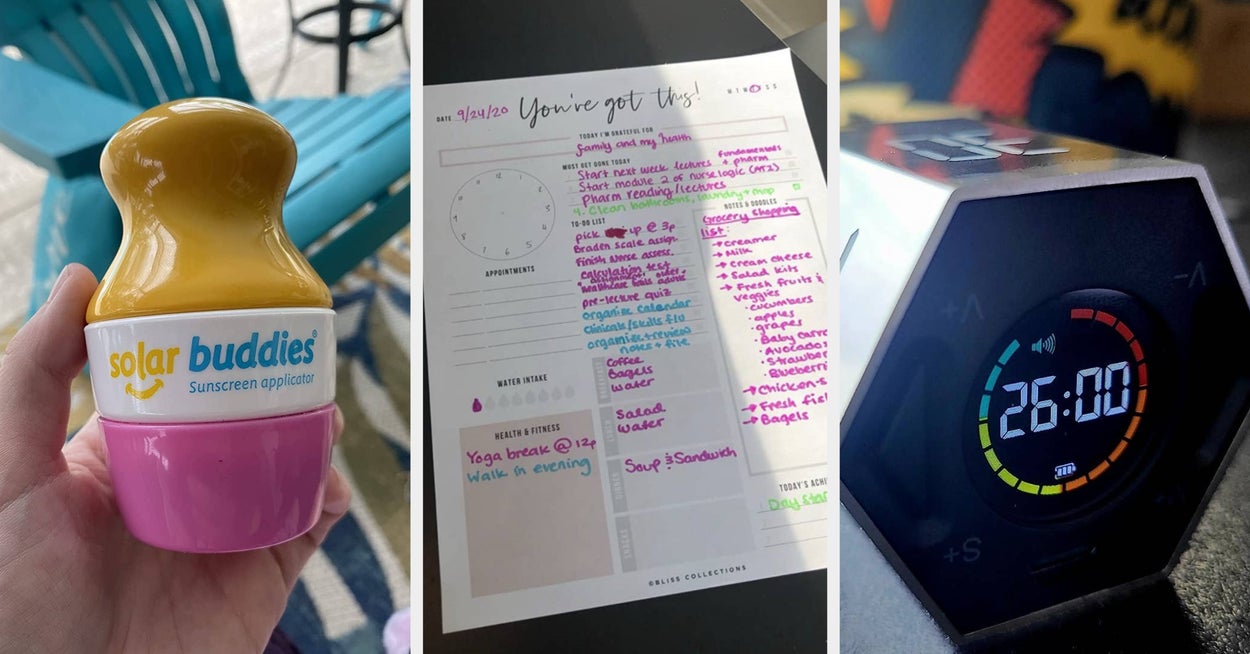 solar buddies®
Sunscreen applicator
DATE 9/24/20
You've got this!
M T W T F S S
TODAY I'M GRATEFUL FOR
family and my health
MUST GET DONE TODAY
Start next week lectures fundamentals + pharm
Start module 2 of nurselogic (ATI)
Pharm reading/lectures
4. Clean bathrooms, laundry + mop
12
1
2
3
4
5
6
7
8
9
10
11
APPOINTMENTS
TO-DO LIST
pick up @ 3p
Braden scale assign.
Finish Norse assess.
calculation test
pre-lecture quiz
organize calendar
clinicals/skills f/u
organize + review
notes + file
NOTES & DOODLES
Grocery shopping
list:
→ creamer
→ Milk
→ cream cheese
→ Salad kits
→ Fresh fruits &
veggies
• cucumbers
• apples
• grapes
• Baby carro
• Avocados
• Strawber
• Blueberri
→ Chicken-s
→ Fresh fis
→ Bagels
WATER INTAKE
HEALTH & FITNESS
Yoga break @ 12p
Walk in evening
BREAKFAST
Coffee
Bagels
water
LUNCH
Salad
water
DINNER
Soup & Sandwich
SNACKS
TODAY'S ACHI
Day star
©BLISS COLLECTIONS
26:00
+S